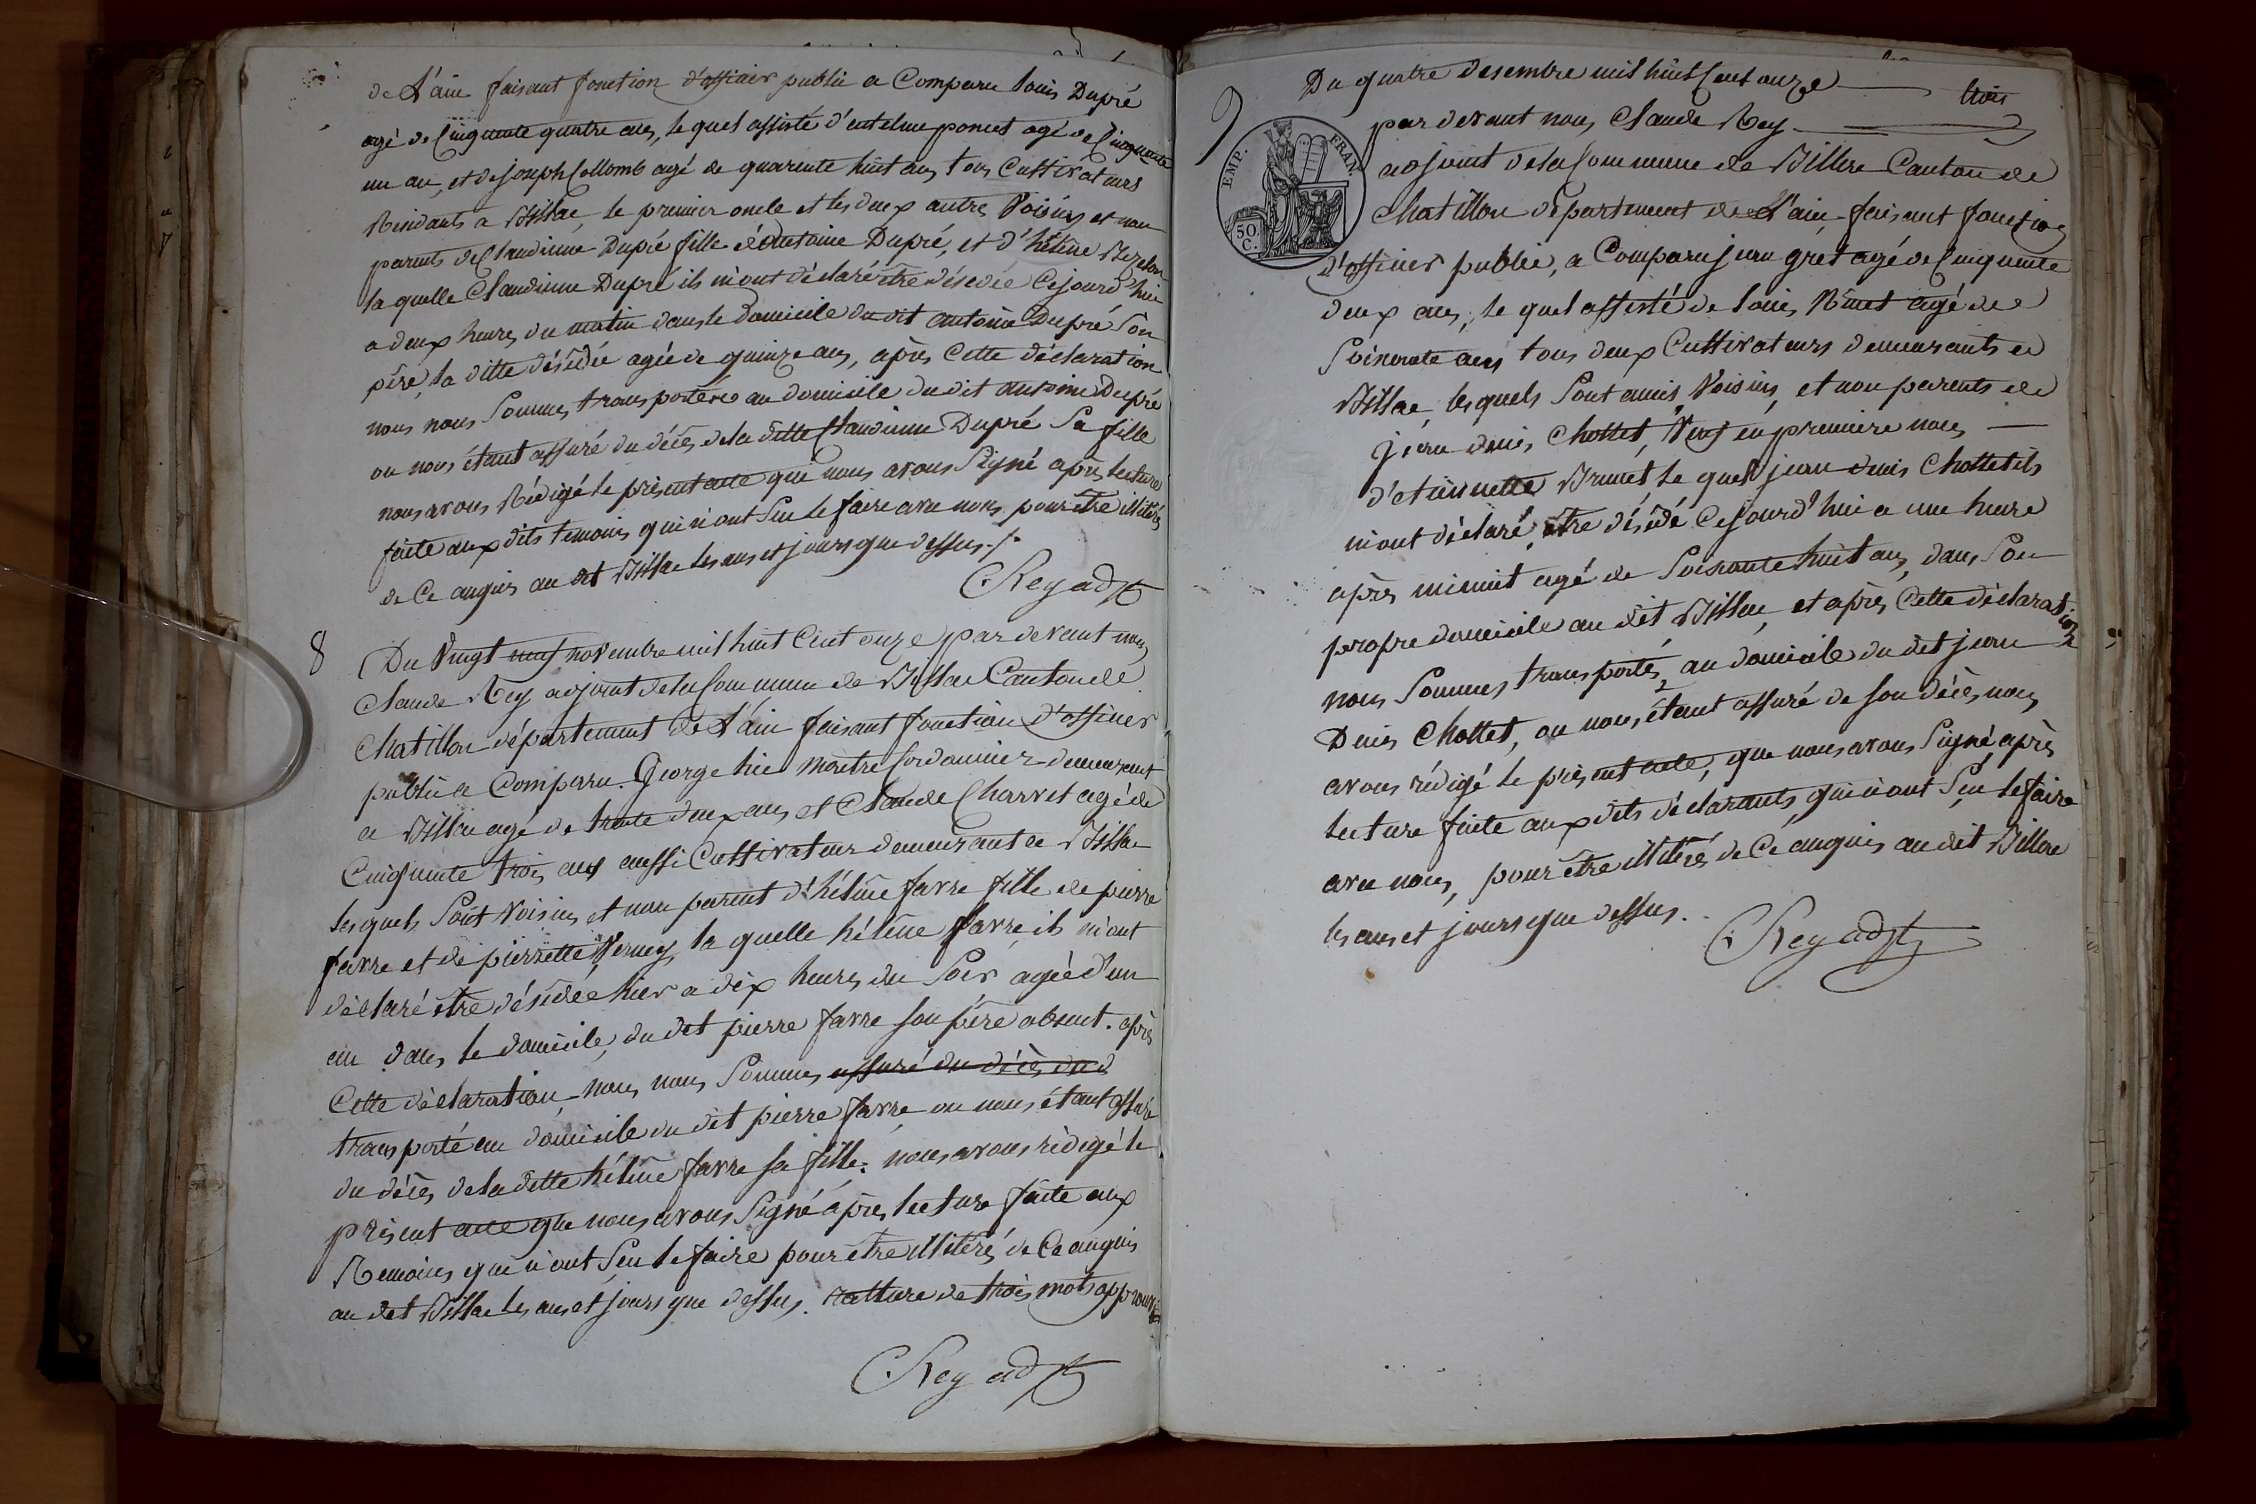 de L'ain faisant fonction d'offiaier publie a Comparu louis Dupré
agé de Cinquante quatre ans, le quel assisté d'entelme poncet agé de Cinquante
un an, et de joseph Collomb agé de quarante huit ans, tous Cultivateurs
Residants a Billae, le premier oncle et les deux autres Voisins et non
parents de Claudinne Dupré fille d'Antoine Dupré, et d'hélène
la quelle Claudinne Dupré ils m'ont déclaré être désedée Cejourd'hui
a deux heures du matin dans le Domicile du dit antoine Dupré Son
père, la ditte désédée agée de quinze ans, après Cette déclaration
nous nous Sommes transportéz au domicile du dit antoine Dupré
ou nous étant assuré du décès de la ditte Claudinne Dupré Sa fille
nous avons Rédigé le présent acte que nous avons Signé après lecture
faite aux dits temoins qui n'ont Seu le faire avec nous pour être illitérés
de Ce anquis au dit Billae les ans et jours que dessus ./.
CRey adjt
8 Du Vingt neuf novembre mil huit Cent onze par devant nous
Claude Rey adjoint de la Commune de Billae Canton de
Chatillon département de L'ain faisant fonction d'officier
publie a Comparu George hie maitre Cordonnier demeurant
a Billae agé de trente deux ans et Claude Charvet agé de
Cinquante trois ans aussi Cultivateur demeurant a Billae
les quels Sont Voisins et non parent d'héléne favre fille de pierre
favre et de pierrette Verney, la quelle héléne favre, ils m'ont
déclaré être désédée hier a dix heures du Soir agée d'un
an dans le domicile, du dit pierre favre son père absent. après
Cette déclaration, nous nous Sommes assuré du décès du d
transporté au domicile du dit pierre favre ou nous étant assuré
du décès de la ditte héléne favre sa fille. nous avons rédigé le
présent acte que nous avons Signé après lecture faite aux
Temoins qui n'ont Seu le faire pour être illitérés de Ce anquis
au dit Billae les ans et jours que dessus. ratture de trois mots approuvées
CRey adjt
9 Du quatre desembre mil huit Cent onze trois
par devant nous Claude Rey
adjoint de la Commune de Billae Canton de
Chatillon département de L'ain, faisant fonction
d'officier publie, a Comparu jean gret agé de Cinquante
deux ans, le quel assisté de louis agé de
Soixante ans tous deux Cultivateurs demeurants a
Billae, les quels Sont amis Voisins, et non parents de
jean denis Chottet, Veuf en premiere noces
d'etiennette Brunet le quel jean denis Chottet ils
m'ont déclaré, être désédé Cejourd'hui a une heure
après minuit agé de Soixante huit ans, dans Son
propre domicile au dit Billae, et après Cette déclaration
nous Sommes transportés au domicile du dit jean
Denis Chottet, ou nous étant assuré de son décès, nous
avons rédigé le présent acte, que nous avons Signé après
lecture faite aux dits déclarants, qui n'ont Seu le faire
avec nous, pour être illitérés de Ce anquis au dit Billae
les ans et jours que dessus.
CRey adjt
EMP. FRAN.
50
C.